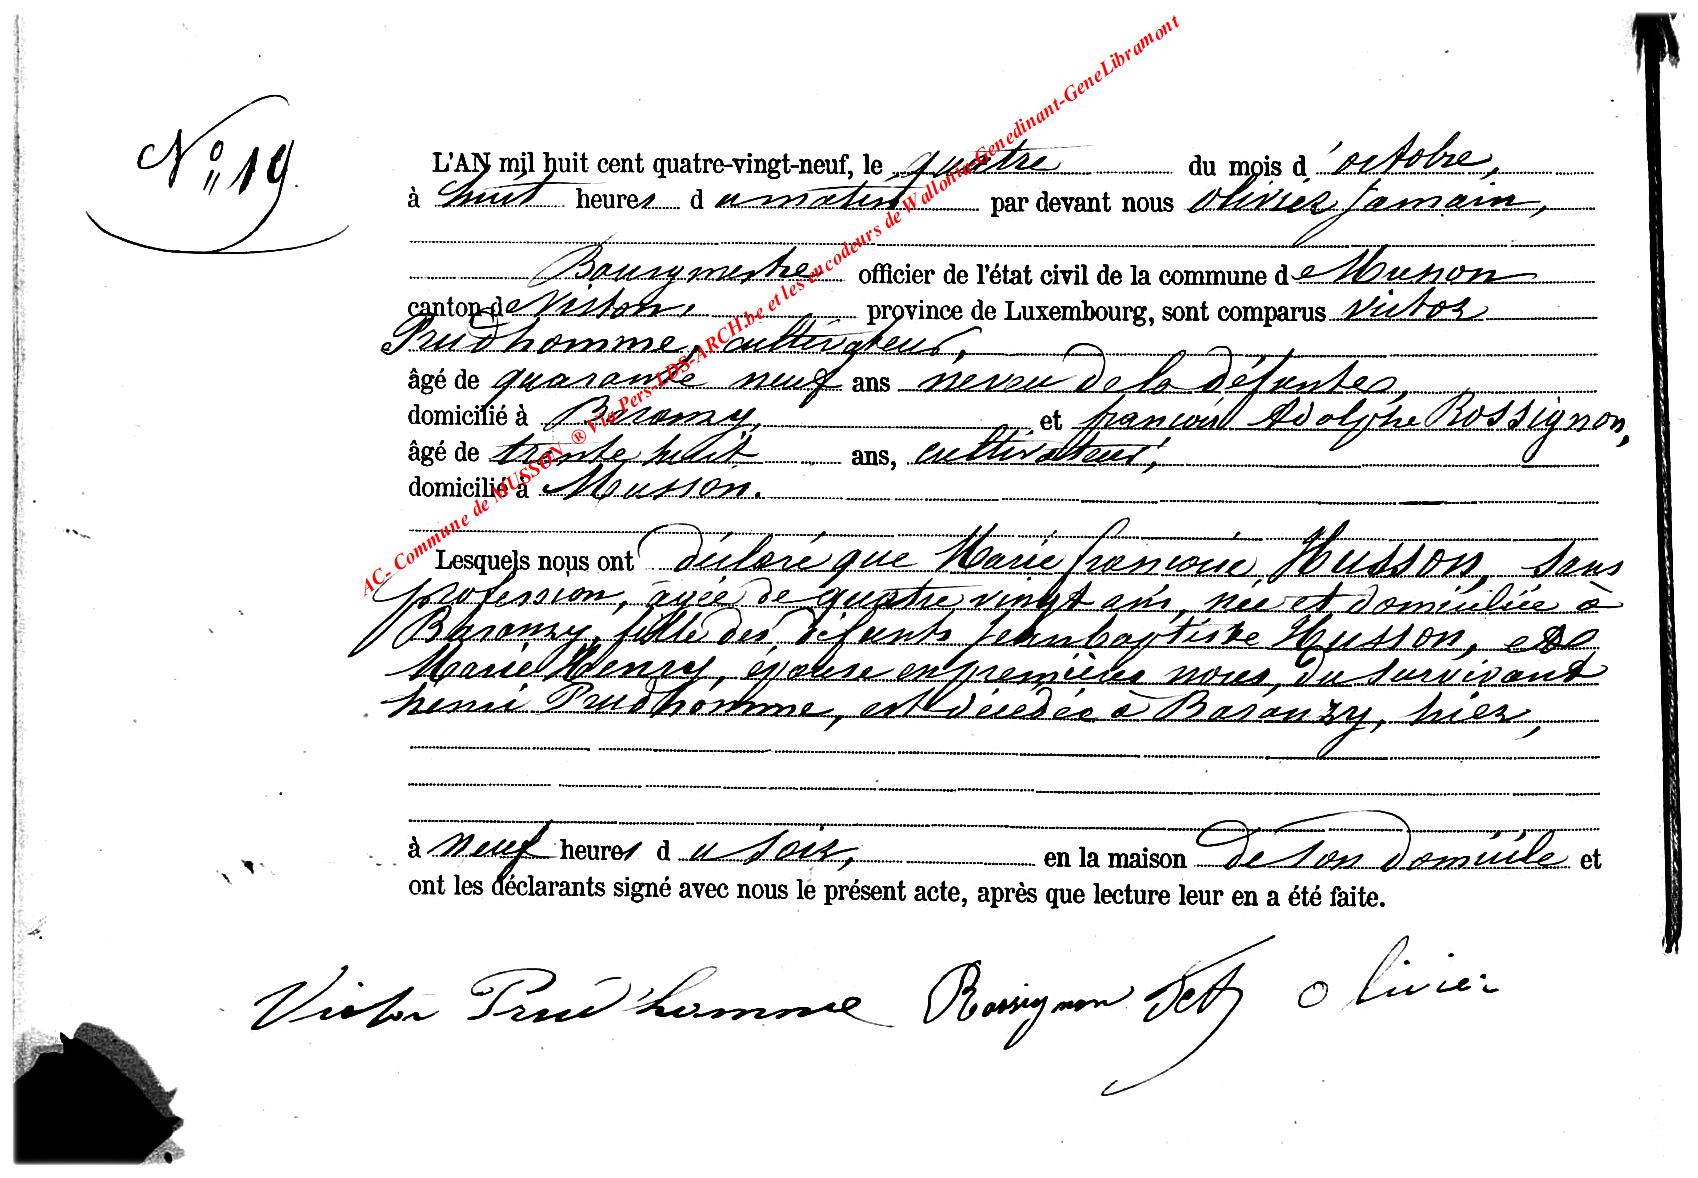 N° 19
L'AN mil huit cent quatre-vingt-neuf, le quatre du mois d'octobre,
à huit heures du matin par devant nous Olivier Jamain,
Bourgmestre officier de l'état civil de la commune de Musson
canton de Virton, province de Luxembourg, sont comparus Victor
Prudhomme, cultivateur,
âgé de quarante neuf ans neveu de la défunte,
domicilié à Baranzy, et françois Adolphe Rossignon,
âgé de trente huit ans, cultivateur,
domicilié à Musson.
Lesquels nous ont déclaré que Marie françoise Husson, sans
profession, âgée de quatre vingt ans, née et domiciliée à
Baranzy, fille des défunts Jean baptiste Husson, et de
Marie Henry, épouse en premières noces, du survivant
henri Prudhomme, est décédée à Baranzy, hier,
à neuf heures du soir, en la maison de son domicile et
ont les déclarants signé avec nous le présent acte, après que lecture leur en a été faite.
Victor Prud'homme Rossignon Olivier
AC- Commune de MUSSON ® Via Pers-LDS-ARCH.be et les encodeurs de Wallonia-Genedinant-GeneLibramont